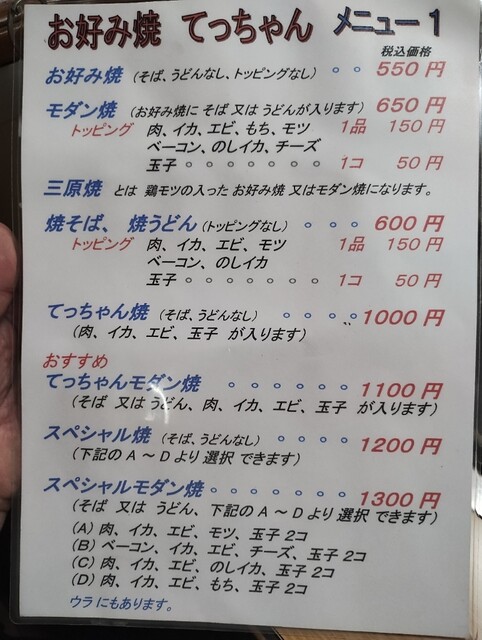 お好み焼 てっちゃん メニュー1
税込価格
お好み焼 (そば、うどんなし、トッピングなし) 。。 550 円
モダン焼 (お好み焼に そば 又は うどんが入ります) 650 円
トッピング 肉、イカ、エビ、もち、モツ 1品 150 円
ベーコン、のしイカ、チーズ
玉子 。。。。。。。 1コ 50 円
三原焼 とは 鶏モツの入った お好み焼 又はモダン焼になります。
焼そば、 焼うどん (トッピングなし) 。。。 600 円
トッピング 肉、イカ、エビ、モツ 1品 150 円
ベーコン、のしイカ
玉子 。。。。。。。 1コ 50 円
てっちゃん焼 (そば、うどんなし) 。。。。 1000 円
(肉、イカ、エビ、玉子 が入ります)
おすすめ
てっちゃんモダン焼 。。。。。。 1100 円
(そば 又は うどん、肉、イカ、エビ、玉子 が入ります)
スペシャル焼 (そば、うどんなし) 。。。。 1200 円
(下記の A ～ D より 選択 できます)
スペシャルモダン焼 。。。。。。。 1300 円
(そば 又は うどん、下記の A ～ D より 選択 できます)
(A) 肉、イカ、エビ、モツ、玉子 2コ
(B) ベーコン、イカ、エビ、チーズ、玉子 2コ
(C) 肉、イカ、エビ、のしイカ、玉子 2コ
(D) 肉、イカ、エビ、もち、玉子 2コ
ウラ にもあります。